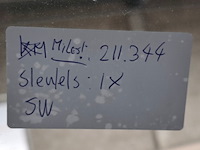 Miles: 211.344
Slewels: 1X
SW